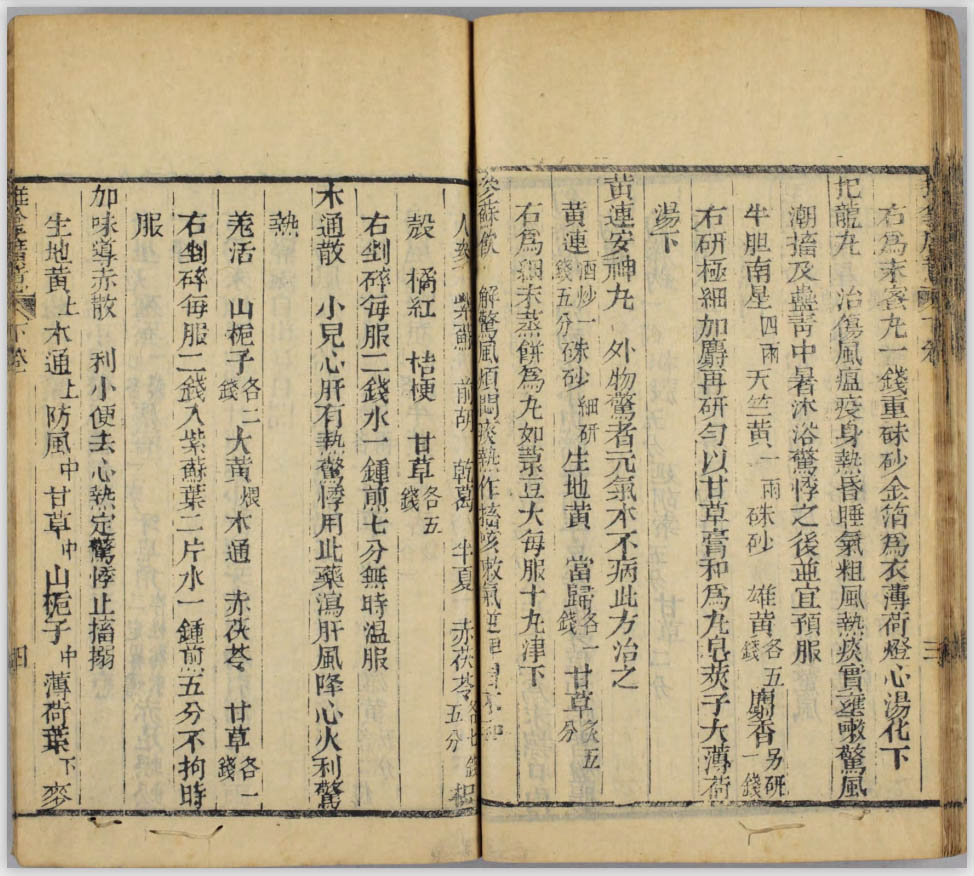 右爲末蜜丸一錢重硃砂金箔爲衣薄荷燈心湯化下
抱龍丸 治傷風瘟疫身熱昏睡氣粗風熱痰實壅嗽驚風
潮搐及蠱毒中暑沐浴驚悸之後並宜預服
牛胆南星四兩 天竺黃一兩 硃砂 雄黃各五錢 麝香另研一錢
右研極細加麝再研勻以甘草膏和爲丸皂莢子大薄荷
湯下
黃連安神丸 外物驚者元氣本不病此方治之
黃連酒炒一錢五分 硃砂細研 生地黃 當歸各一錢 甘草炙五分
右爲細末蒸餅爲丸如菉豆大每服十丸津下
參蘇飲 解驚風煩悶痰熱作搐咳嗽氣逆
三
人參 紫蘇 前胡 乾葛 半夏 赤茯苓各七錢五分 枳
殼 橘紅 桔梗 甘草各五錢
右剉碎每服二錢水一鍾煎七分無時温服
木通散 小兒心肝有熱驚悸用此藥瀉肝風降心火利驚
熱
羗活 山梔子各二錢 大黃煨 木通 赤茯苓 甘草各一錢
右剉碎每服二錢入紫蘇葉二片水一鍾煎五分不拘時
服
加味導赤散 利小便去心熱定驚悸止搐搦
生地黃上 木通上 防風中 甘草中 山梔子中 薄荷葉下 麥
下卷
四